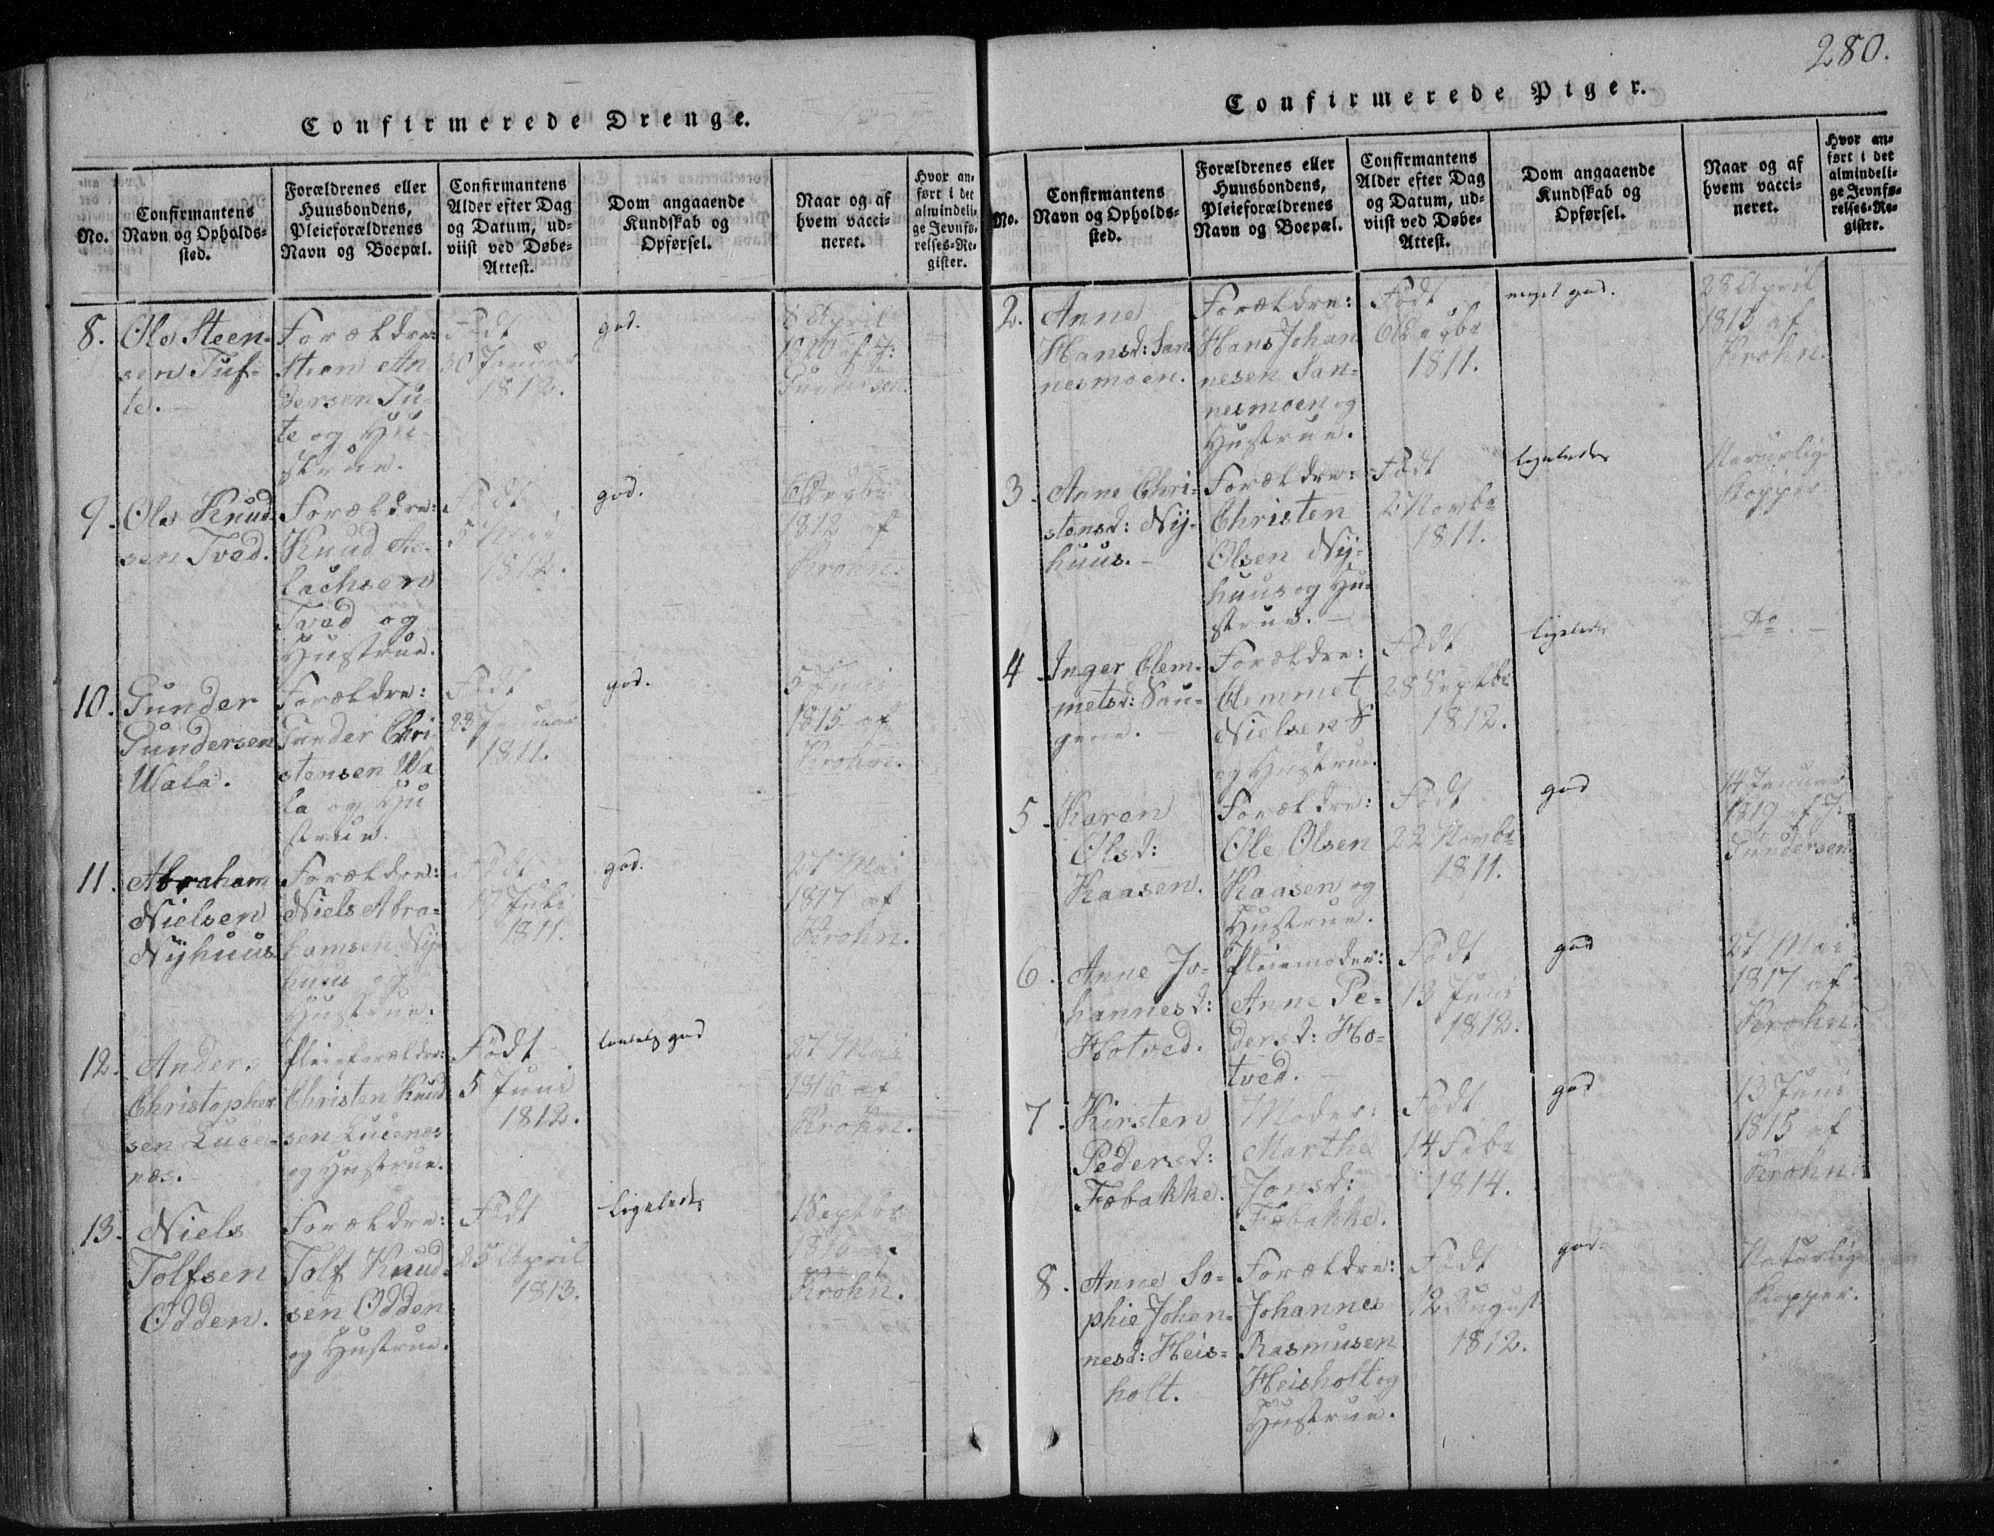 280.
Confirmerede Drenge.
No.
Confirmantens
Navn og Opholds-
sted.
Forældrenes eller
Huusbondens,
Pleieforældrenes
Navn og Boepæl.
Confirmantens
Alder efter Dag
og Datum, ud-
viist ved Døbe-
Attest.
Dom angaaende
Kundskab og
Opførsel.
Naar og af
hvem vacci-
neret.
Hvor an-
ført i det
almindeli-
ge Jevnfø-
relses-Re-
gister.
8.
Ole Steen-
sen Tuf-
te.
Forældre:
Steen An
dersen Tu-
te og Hu-
strue.
Født
30 Januar
1812.
god.
8 April
1820 af J:
Gundersen.
9.
Ole Knud
sen Tved.
Forældre:
Knud As-
lachsen
Tved og
Hustrue.
Født
5 Mai
1812.
god.
1812 af
Krohn.
10.
Gunder
Gundersen
Wala.
Forældre:
Gunder Chri-
stensen Wa
la og Hu
strue.
Født
28 Januar
1811.
god.
5 Juni
1815 af
Krohn.
11.
Abraham
Nielsen
Nyhuus.
Forældre:
Niels Abra-
hamsen Ny-
huus og
Hustrue.
Født
17 Juli
1811.
god.
27 Mai
1817 af
Krohn.
12.
Anders
Christopher
sen Lucie-
næs.
Pleieforældre:
Christen Knud
sen Lucienes
og Hustrue.
Født
5 Juni
1812.
temmelig god
27 Mai
1816 af
Krohn.
13.
Niels
Tolfsen
Odden.
Forældre:
Tolf Knud-
sen Odden
og Hustrue.
Født
25 April
1813.
ligeledes
Krohn.
Confirmerede Piger.
No.
Confirmantens
Navn og Opholds-
sted.
Forældrenes eller
Huusbondens,
Pleieforældrenes
Navn og Boepæl.
Confirmantens
Alder efter Dag
og Datum, ud-
viist ved Døbe-
Attest.
Dom angaaende
Kundskab og
Opførsel.
Naar og af
hvem vacci-
neret.
Hvor an-
ført i det
almindeli-
ge Jevnfø-
relses-Re-
gister.
2.
Anne
Hansd: San
nesmoen.
Forældre:
Hans Johan
nesen San-
nesmoen og
Hustrue.
Født
1811.
meget god.
28 April
1813 af
Krohn.
3.
Anne Chri-
stensd: Ny-
huus.
Forældre:
Christen
Olsen Ny-
huus og Hu-
strue.
Født
2 Novbr
1811.
ligeledes
Naturlige
Kopper.
4.
Inger Clem-
metsd: Sau-
gene.
Forældre:
Clemmet
Nielsen S
og Hustrue.
Født
28 Septbr
1812.
ligeledes
Do.
5.
Karen
Olsd:
Kaasen.
Forældre:
Ole Olsen
Kaasen og
Hustrue.
Født
22 Novbr
1811.
god
14 Januar
1819 af J:
Gundersen.
6.
Anne Jo-
hannesd:
Hotved.
Pleiemoder:
Anne Pe-
dersd: Ho-
tved.
Født
13 Juni
1812.
god
27 Mai
1817 af
Krohn.
7.
Kirsten
Pedersd:
Fæbakke.
Moder:
Marthe
Jonsd:
Fæbakke.
Født
14 Febr
1814.
god
13 Juni
1815 af
Krohn.
8.
Anne So-
phie Johan-
nesd: Heis-
holt.
Forældre:
Johannes
Rasmusen
Heisholt og
Hustrue.
Født
12 August
1812.
god.
Naturlige
Kopper.